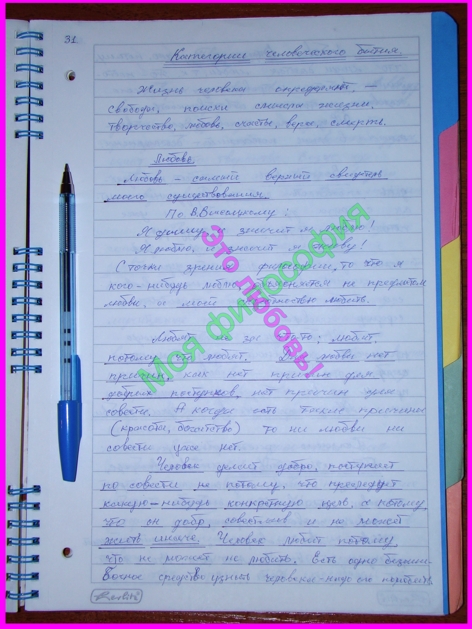 31
Категории человеческого бытия.
Жизнь человека определяют —
свобода, поиски смысла жизни,
творчество, любовь, счастье, вера, смерть.
Любовь.
Любовь – самый верный свидетель
моего существования.
По В.Высоцкому:
Я дышу, и значит я люблю!
Я люблю, и значит я живу!
С точки зрения философии, то что я
кого-нибудь люблю, объясняется не предметом
любви, а моей способностью любить.
Любят не за что-то; любят,
потому что любят. Для любви нет
причин, как нет причин для
добрых поступков, нет причин для
совести. А когда есть такие причины
(красота, богатство) то ни любви ни
совести уже нет.
Человек делает добро, поступает
по совести не потому, что преследует
какую-нибудь конкретную цель, а потому
что он добр, совестлив и не может
жить иначе. Человек любит потому,
что не может не любить. Есть одно безоши-
бочное средство узнать человека
Моя философия
это любовь!